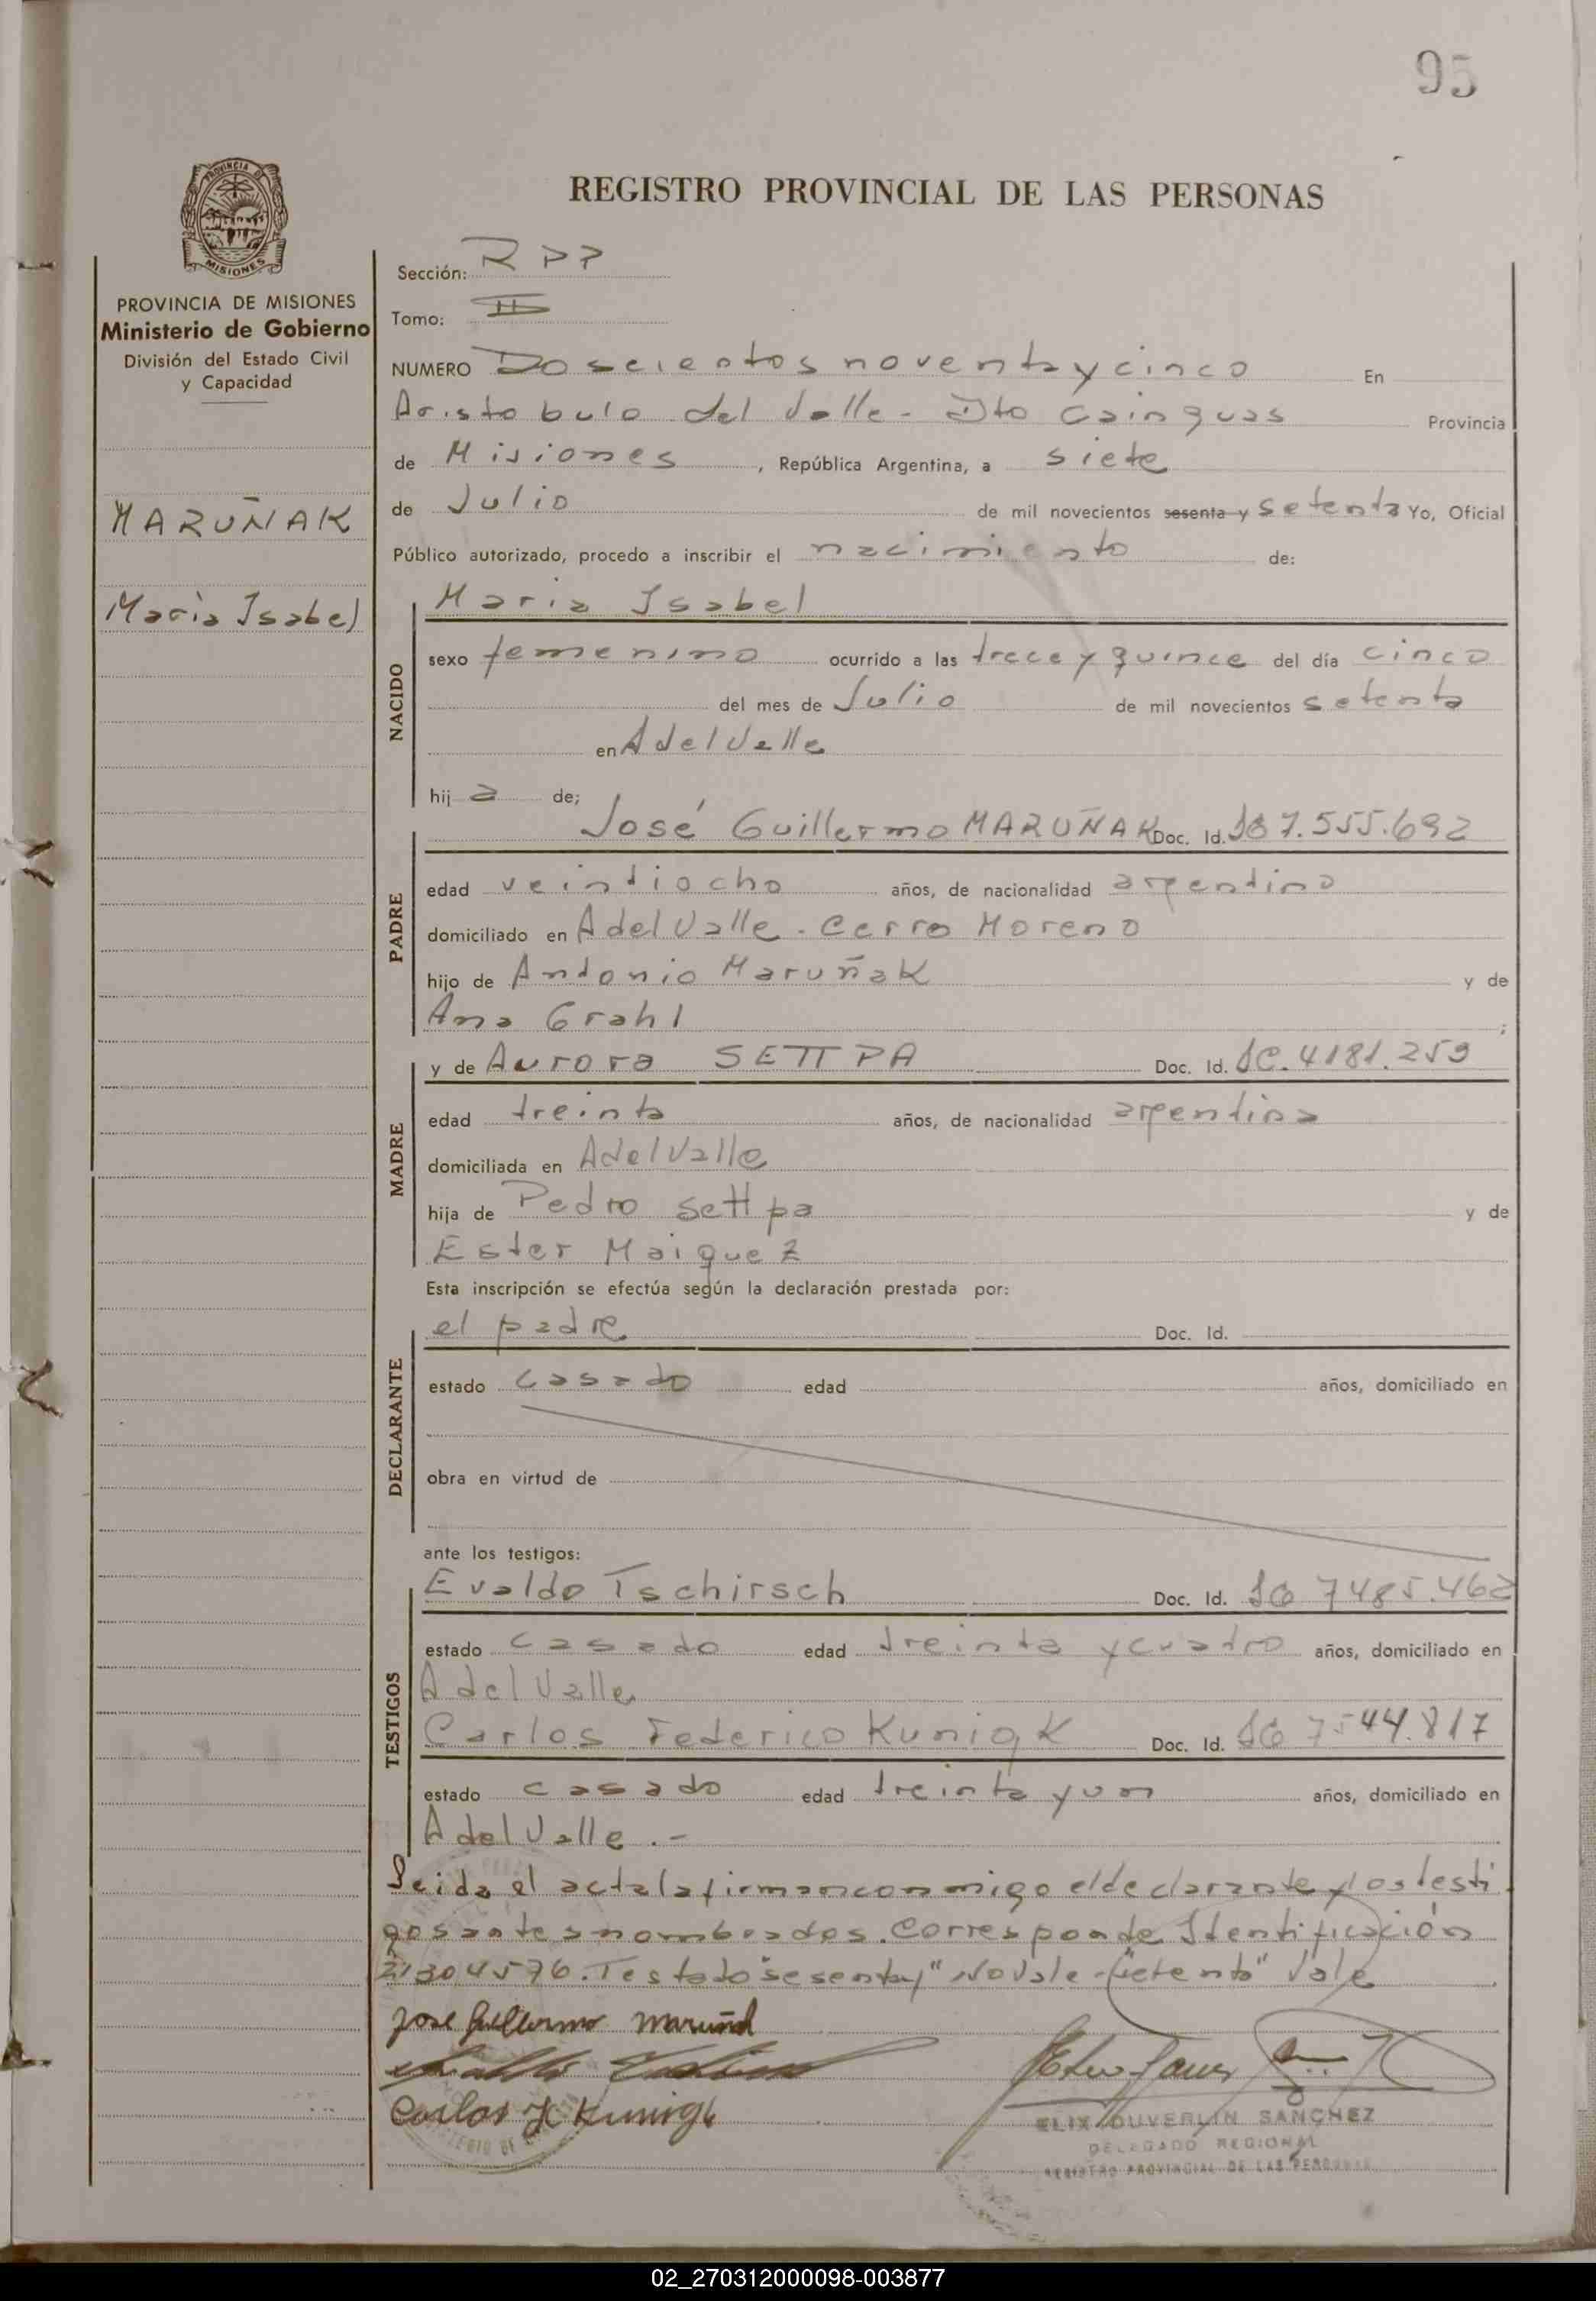 95
PROVINCIA DE
MISIONES
REGISTRO PROVINCIAL DE LAS PERSONAS
PROVINCIA DE MISIONES
Ministerio de Gobierno
División del Estado Civil
y Capacidad
MARUÑAK
Maria Isabel
Sección: RPP
Tomo: II
NUMERO Doscientos noventa y cinco En
Aristobulo del Valle - Dto Cainguas Provincia
de Misiones, República Argentina, a siete
de Julio de mil novecientos sesenta y setenta Yo, Oficial
Público autorizado, procedo a inscribir el nacimiento de:
Maria Isabel
NACIDO
sexo femenino ocurrido a las trece y quince del día cinco
del mes de Julio de mil novecientos setenta
en A del Valle
hija de;
José Guillermo MARUÑAK Doc. Id. 7.555.692
PADRE
edad veintiocho años, de nacionalidad argentino
domiciliado en A del Valle - Cerro Moreno
hijo de Antonio Maruñak y de
Ana Grahl;
y de Aurora SETTPA Doc. Id. 4181.259
MADRE
edad treinta años, de nacionalidad argentina
domiciliada en A del Valle
hija de Pedro Settpa y de
Ester Maiquez
Esta inscripción se efectúa según la declaración prestada por:
el padre Doc. Id.
DECLARANTE
estado casado edad años, domiciliado en
obra en virtud de
ante los testigos:
Evaldo Tschirsch Doc. Id. 7485.462
TESTIGOS
estado casado edad treinta y cuatro años, domiciliado en
A del Valle
Carlos Federico Kunigk Doc. Id. 7544.817
estado casado edad treinta y un años, domiciliado en
A del Valle.-
Leida el acta la firman conmigo el declarante y los testi
gos antes nombrados. Corresponde Identificación
21304576. Testado "sesenta y" No Vale - "setenta" Vale
Jose Guillermo Maruñak
Carlos F Kunigk
ELIX DUVERLIN SANCHEZ
DELEGADO REGIONAL
REGISTRO PROVINCIAL DE LAS PERSONAS
02_270312000098-003877